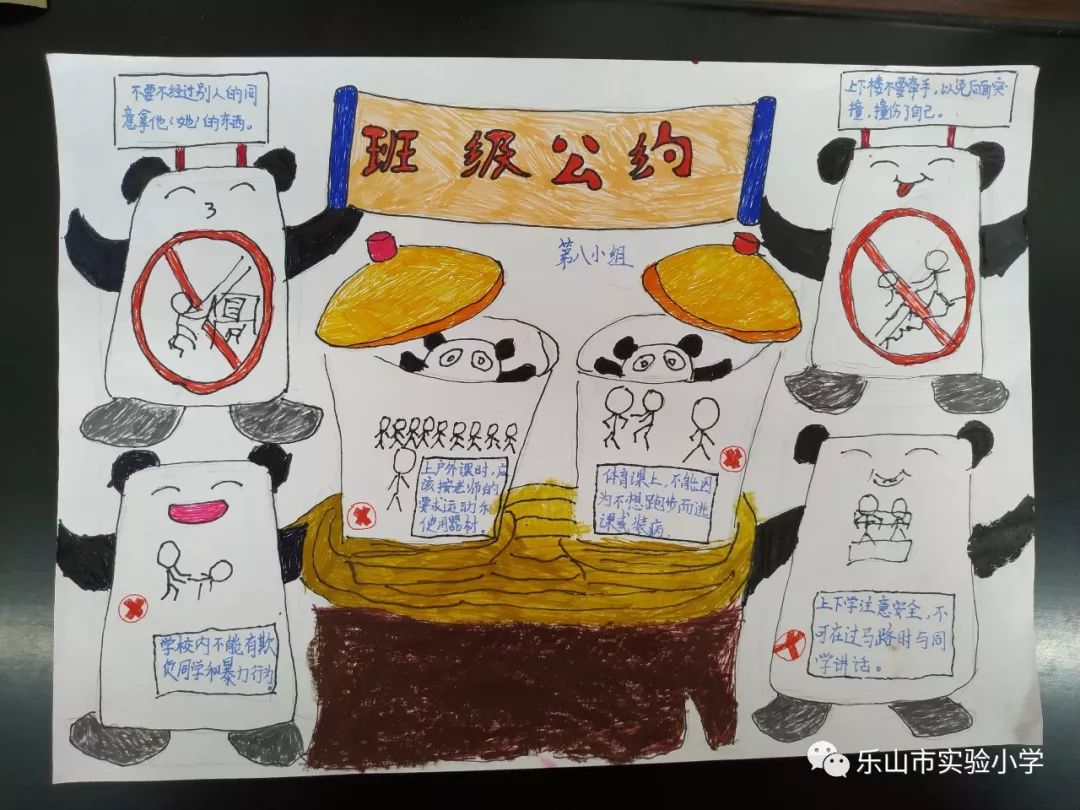 班级公约
第八小组
不要不经过别人的同
意拿他(她)的东西。
上下楼不要牵手,以免后面突
撞,撞伤了自己。
上户外课时,应
该按老师的
要求运动和
使用器材。
体育课上,不能因
为不想跑步而逃
课或装病.
学校内不能有欺
负同学和暴力行为。
上下学注意安全,不
可在过马路时与同
学讲话。
乐山市实验小学